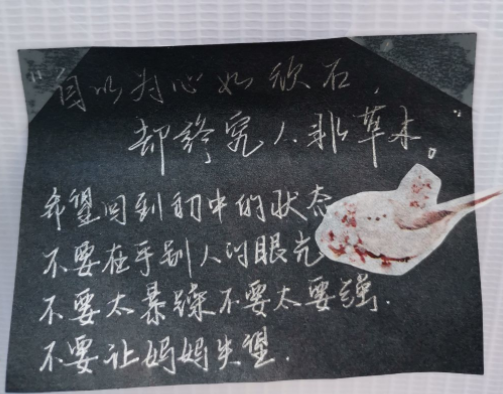 "自以为心如欣石，
却终究人非草木。
希望回到初中的状态
不要在乎别人的眼光
不要太暴躁不要太要强.
不要让妈妈失望.